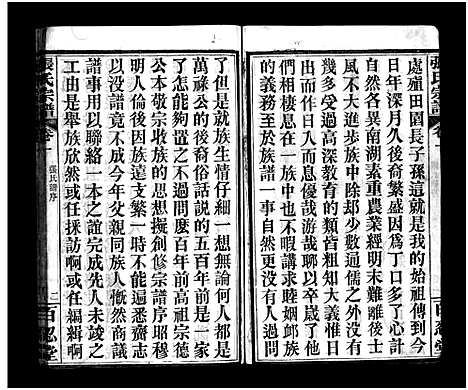 張氏宗譜
卷一
處雇田園長子孫這就是我的始祖傳到今
日年深月久後裔繁盛因為丁口多了心計
自然各異南湖素重農業經明末兵難後士
風不大進步其中除却少數還可領會沒有
幾多受過高深教育的類皆粗知大義惟日
出而作日入而息或嬉哉游哉聊以卒歲而
相與棲息在一塊中也不暇講求睦婣邺族
的義務至於族譜一事自然更沒有人過問
了但是就族生情仔細一想無論何人都是
萬祿公的後裔俗話說的五百年前是一家
了怎能夠設置的麼百年前高祖宗德
公本敬宗收族的思想擬創修宗譜序昭穆
明人倫後因族遠支繁一時不能遍悉齋志
以沒譜竟不成今年叔父親同族人慨然商議
譜事用以聯絡一本之誼完成先人未竟之
工由是舉族欣然或任採訪啊或任編輯啊
張氏宗譜
卷一
張氏譜序
二
百忍堂